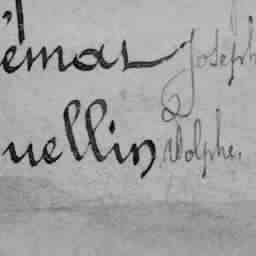 émar Joseph
uellin Adolphe.